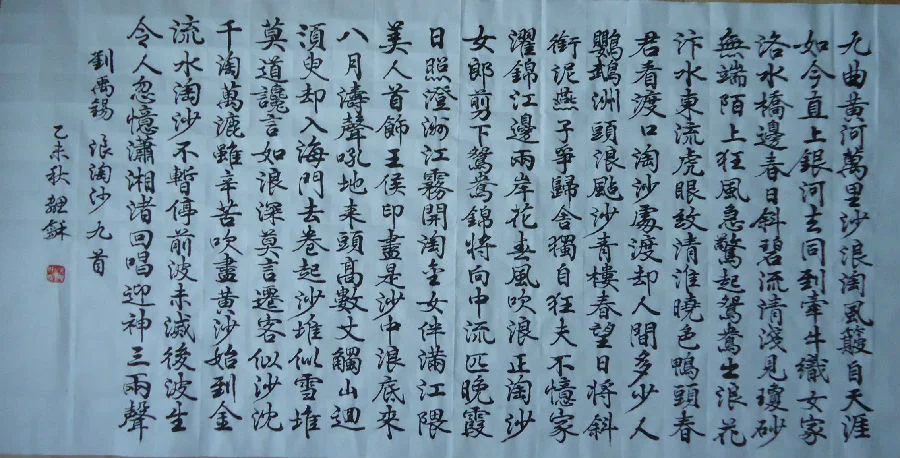 九曲黄河萬里沙浪淘風簸自天涯
如今直上銀河去同到牽牛織女家
洛水橋邊春日斜碧流清淺見瓊砂
無端陌上狂風急驚起鴛鴦出浪花
汴水東流虎眼紋清淮曉色鴨頭春
君看渡口淘沙處渡却人間多少人
鸚鵡洲頭浪颭沙青樓春望日將斜
銜泥燕子爭歸舍獨自狂夫不憶家
濯錦江邊兩岸花春風吹浪正淘沙
女郎剪下鴛鴦錦將向中流匹晚霞
日照澄洲江霧開淘金女伴滿江隈
美人首飾王侯印盡是沙中浪底來
八月濤聲吼地来頭高數丈觸山迴
須臾却入海門去卷起沙堆似雪堆
莫道讒言如浪深莫言遷客似沙沈
千淘萬漉雖辛苦吹盡黄沙始到金
流水淘沙不暫停前波未滅後波生
令人忽憶瀟湘渚回唱迎神三兩聲
劉禹錫 浪淘沙九首
乙未秋